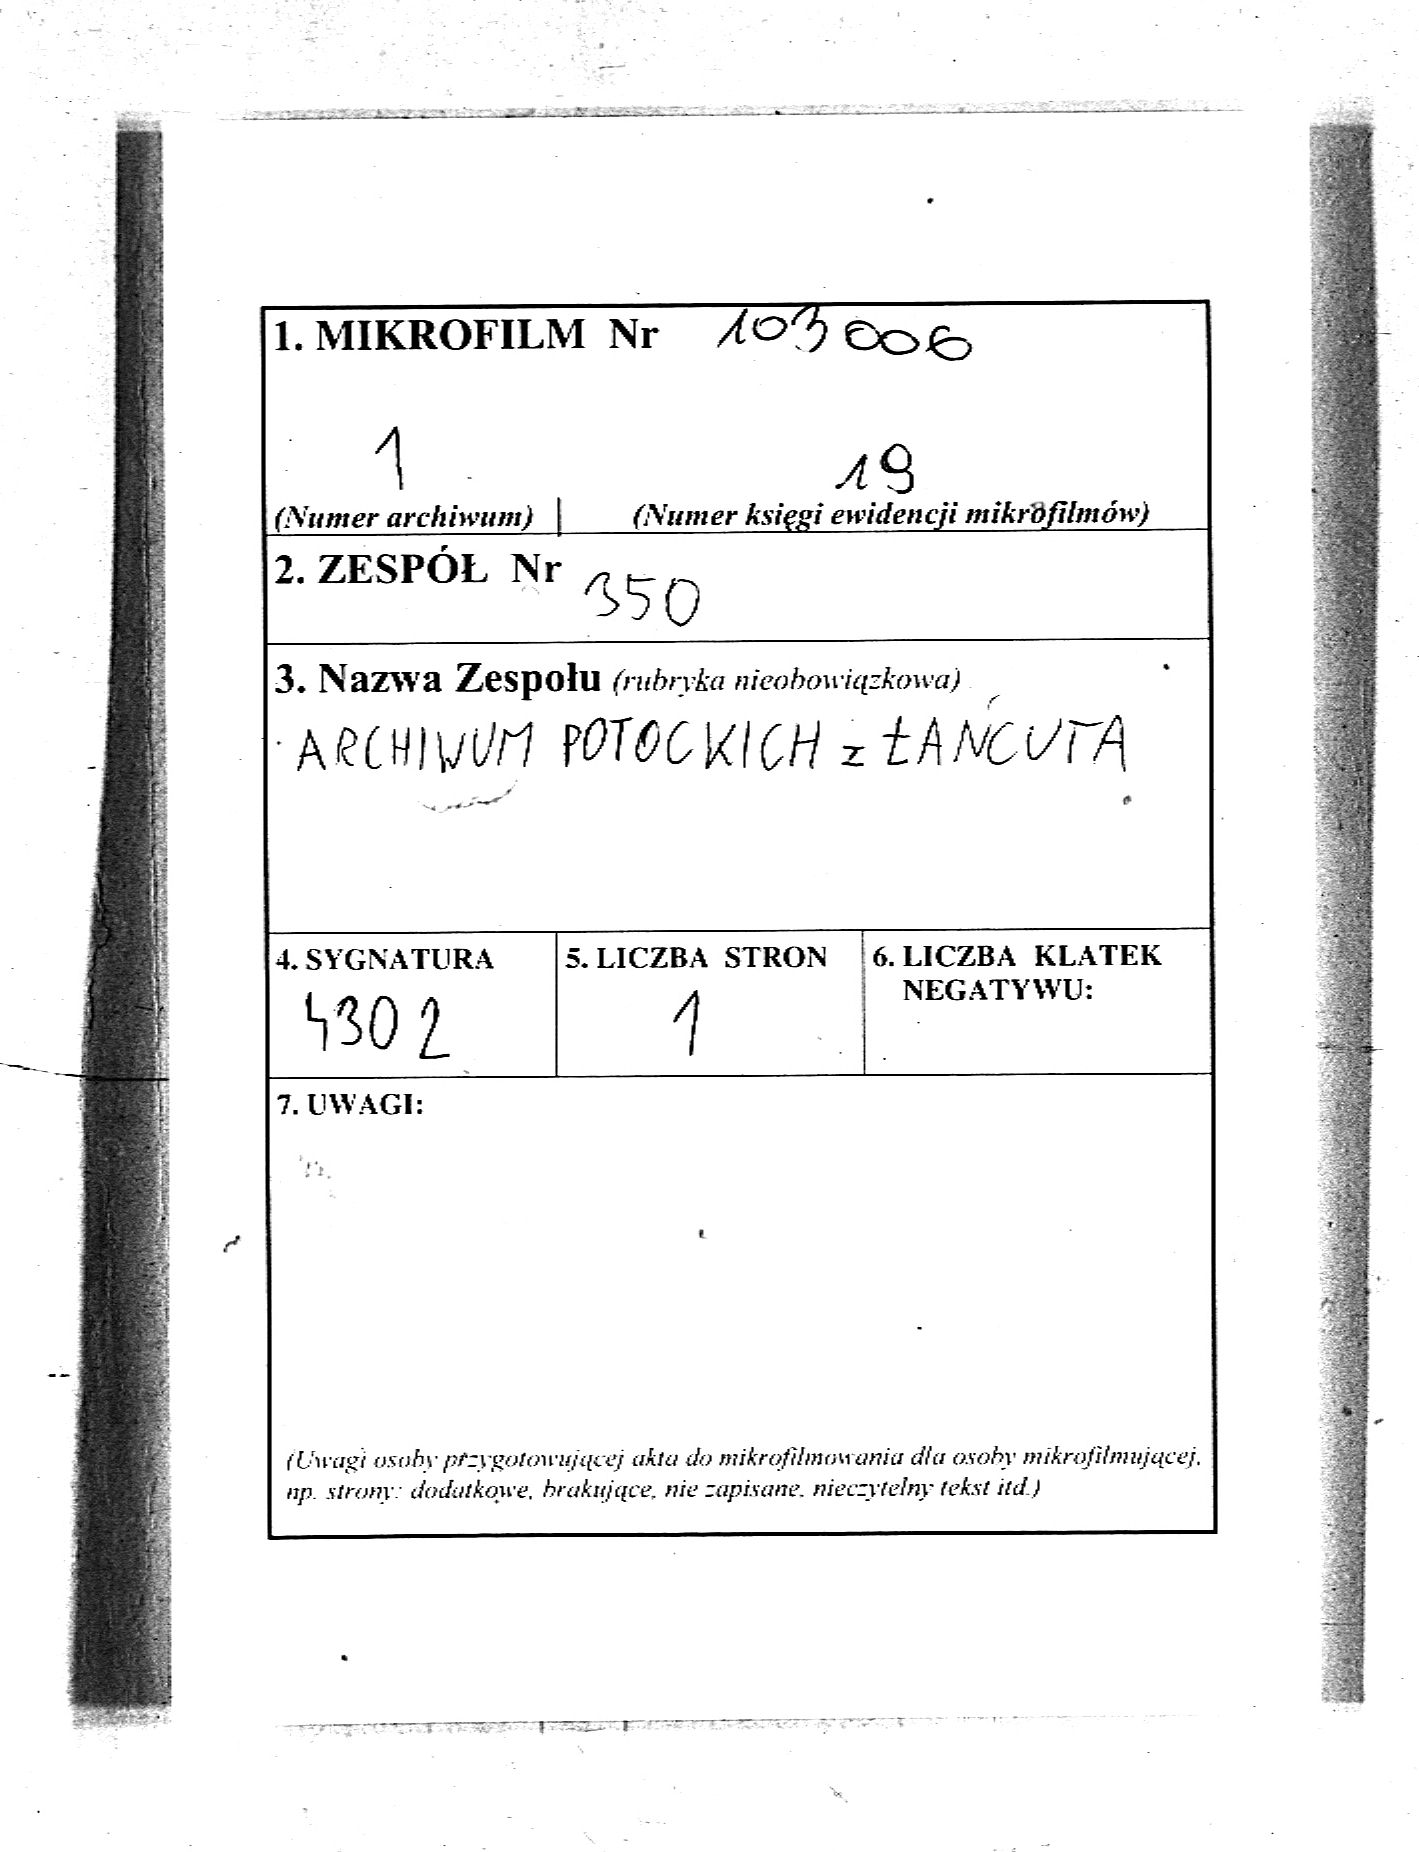 1. MIKROFILM Nr 103006
1 19
(Numer archiwum) | (Numer księgi ewidencji mikrofilmów)
2. ZESPÓŁ Nr 350
3. Nazwa Zespołu (rubryka nieobowiązkowa)
ARCHIWUM POTOCKICH z ŁAŃCUTA
4. SYGNATURA
4302
5. LICZBA STRON
1
6. LICZBA KLATEK
NEGATYWU:
7. UWAGI:
(Uwagi osoby przygotowującej akta do mikrofilmowania dla osoby mikrofilmującej,
np. strony: dodatkowe, brakujące, nie zapisane, nieczytelny tekst itd.)